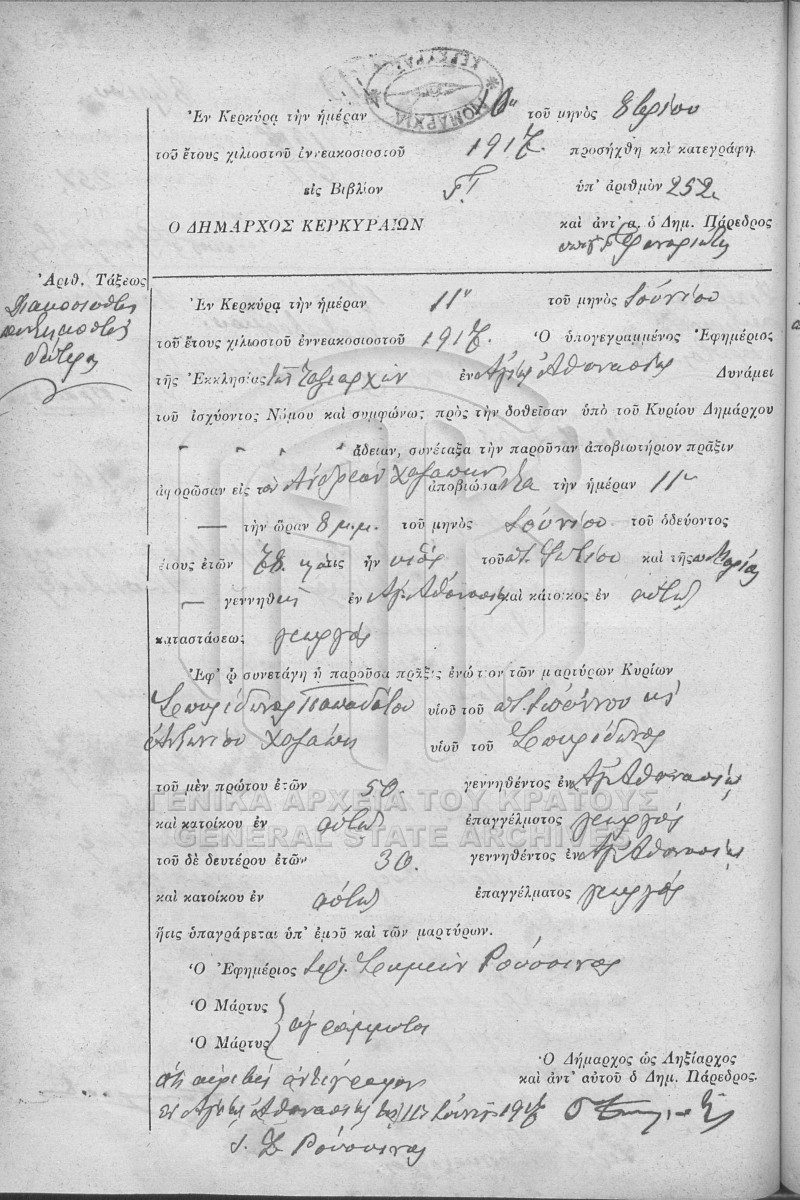 ΚΕΡΚΥΡΑ
ΝΟΜΑΡΧΙΑ
Ἐν Κερκύρᾳ τὴν ἡμέραν 10η τοῦ μηνὸς 8βρίου
τοῦ ἔτους χιλιοστοῦ ἐννεακοσιοστοῦ 1917 προσήχθη καὶ κατεγράφη
εἰς Βιβλίον ὑπ' ἀριθμὸν 252
Ο ΔΗΜΑΡΧΟΣ ΚΕΡΚΥΡΑΙΩΝ καὶ ἀντ' α. ὁ Δημ. Πάρεδρος
Ἀριθ. Τάξεως
Διακοσιοστὴ
πεντηκοστὴ
δευτέρα
Ἐν Κερκύρᾳ τὴν ἡμέραν 11η τοῦ μηνὸς Ἰουνίου
τοῦ ἔτους χιλιοστοῦ ἐννεακοσιοστοῦ 1917. Ὁ ὑπογεγραμμένος Ἐφημέριος
τῆς Ἐκκλησίας τῶν Ταξιαρχῶν ἐν Ἁγίῳ Ἀθανασίῳ Δυνάμει
τοῦ ἰσχύοντος Νόμου καὶ συμφώνως πρὸς τὴν δοθεῖσαν ὑπὸ τοῦ Κυρίου Δημάρχου
ἄδειαν, συνέταξα τὴν παροῦσαν ἀποβιωτήριον πρᾶξιν
ἀφορῶσαν εἰς τὸν Ἀνδρέαν ἀποβιώσαντα τὴν ἡμέραν 11η
— τὴν ὥραν 8 μ.μ. τοῦ μηνὸς Ἰουνίου τοῦ ὁδεύοντος
ἔτους ἐτῶν ὅστις ἦν υἱὸς τοῦ ποτ. Φωτίου καὶ τῆς Μαρίας
— γεννηθεὶς ἐν Ἁγ. Ἀθανασίῳ καὶ κάτοικος ἐν αὐτῷ
καταστάσεως γεωργὸς
Ἐφ' ᾧ συνετάγη ἡ παροῦσα πρᾶξις ἐνώπιον τῶν μαρτύρων Κυρίων
Σπυρίδωνος Παπαδάτου υἱοῦ τοῦ ποτ. Ἰωάννου κ
Ἀντωνίου υἱοῦ τοῦ Σπυρίδωνος
τοῦ μὲν πρώτου ἐτῶν 50. γεννηθέντος ἐν Ἁγ. Ἀθανασίῳ
ΓΕΝΙΚΑ ΑΡΧΕΙΑ ΤΟΥ ΚΡΑΤΟΥΣ
καὶ κατοίκου ἐν αὐτῷ ἐπαγγέλματος γεωργός
GENERAL STATE ARCHIVES
τοῦ δὲ δευτέρου ἐτῶν 30. γεννηθέντος ἐν Ἁγ. Ἀθανασίῳ
καὶ κατοίκου ἐν αὐτῷ ἐπαγγέλματος γεωργός
ἥτις ὑπογράφεται ὑπ' ἐμοῦ καὶ τῶν μαρτύρων.
Ὁ Ἐφημέριος Ἱερ. Ῥούσσινος
Ὁ Μάρτυς
ἀγράμματοι
Ὁ Μάρτυς
Ὁ Δήμαρχος ὡς Ληξίαρχος
καὶ ἀντ' αὐτοῦ ὁ Δημ. Πάρεδρος.
ἀκριβὲς ἀντίγραφον
ἐν Ἁγίῳ Ἀθανασίῳ τῇ 11η Ἰουνίου 1917
Ῥούσσινος